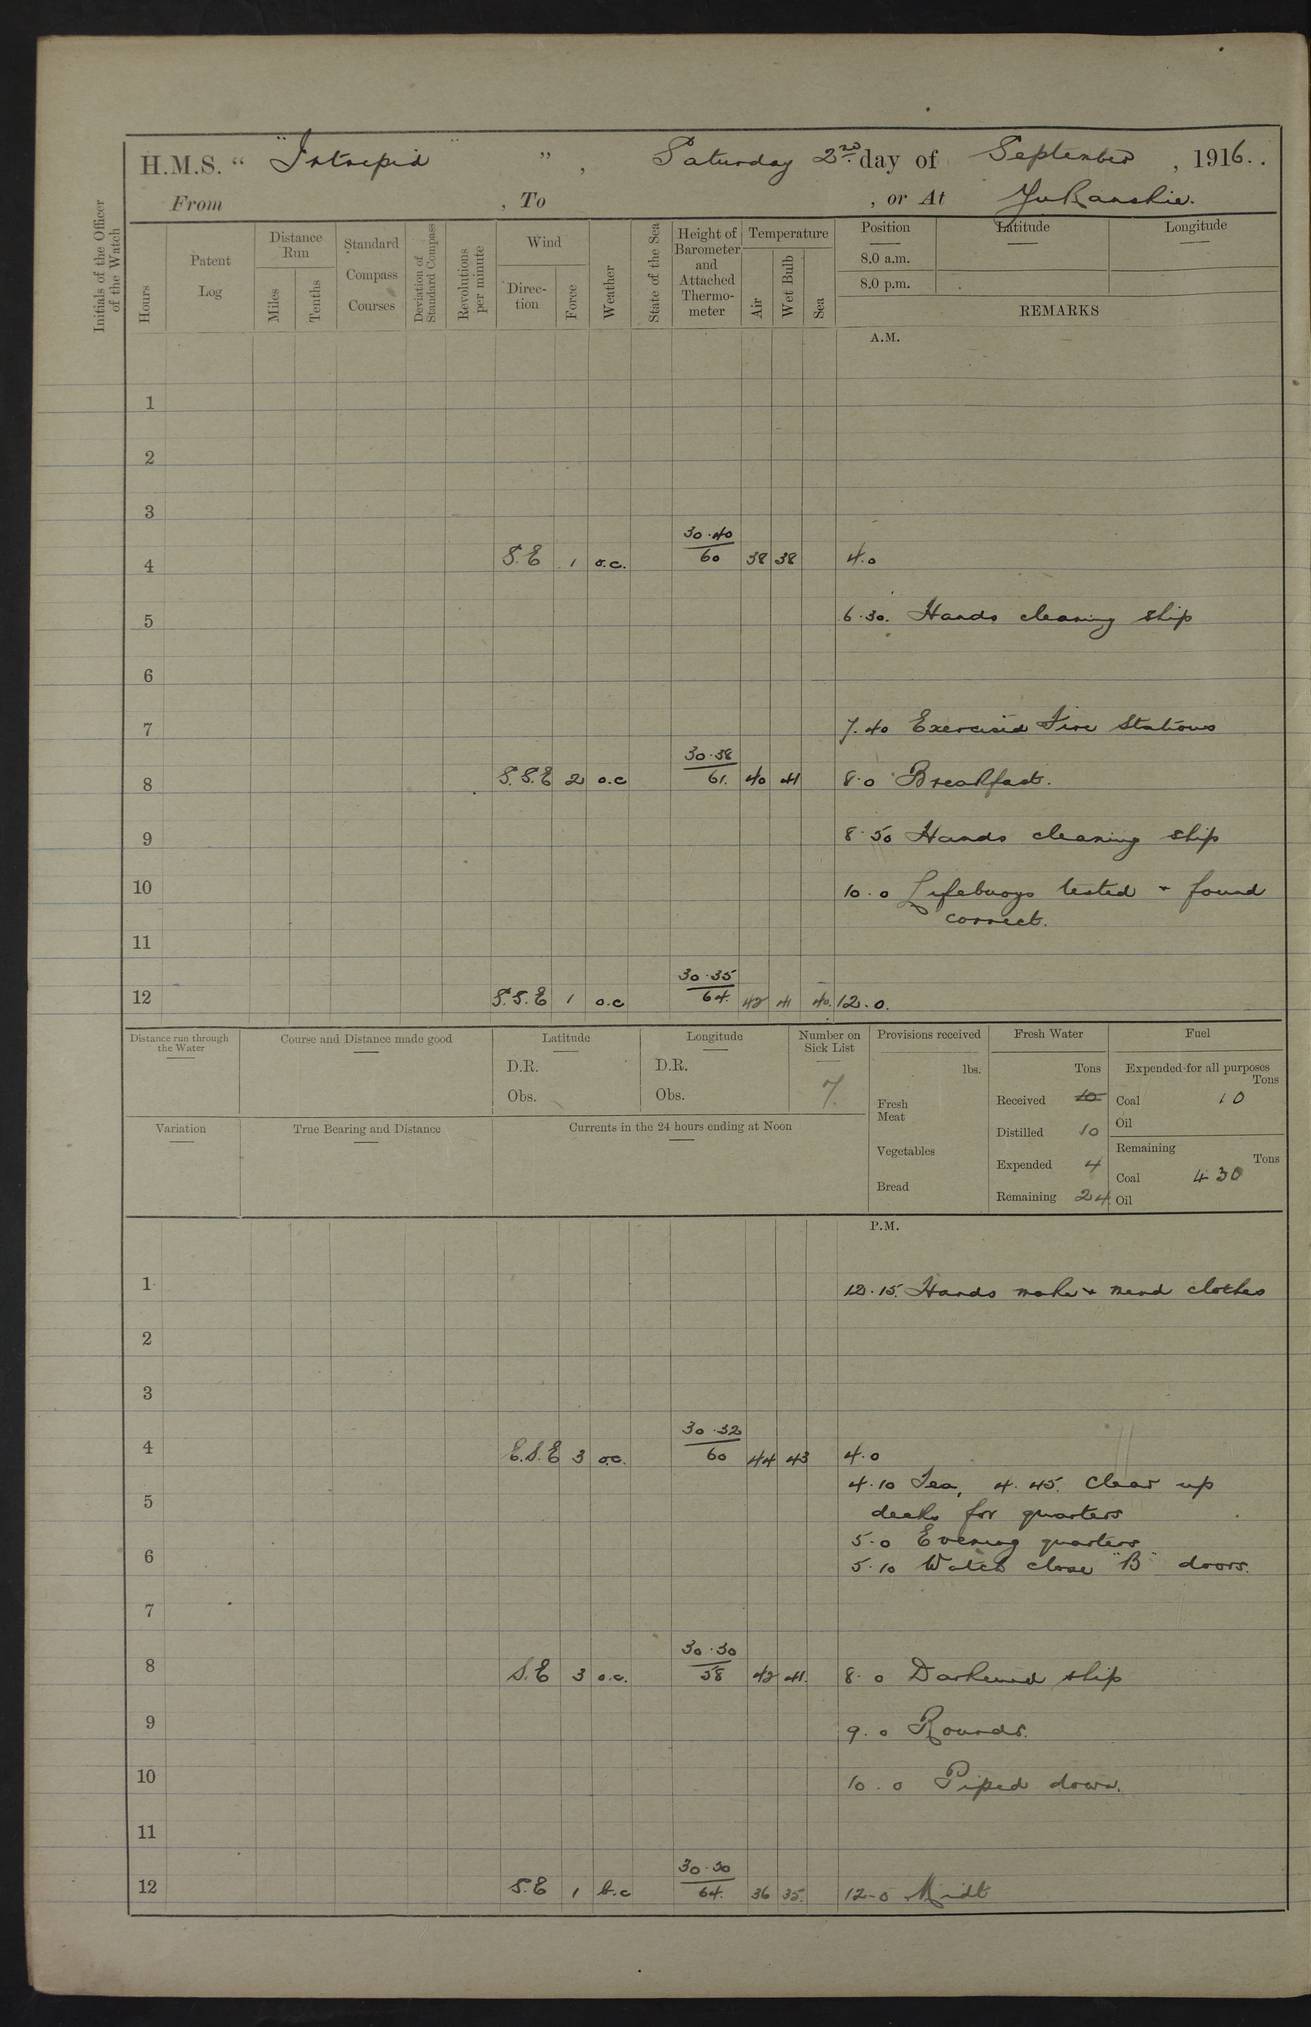 H.M.S. " Intrepid ", Saturday 2nd day of September, 1916.
From , To , or At Yukanskie.
Initials of the Officer of the Watch
Hours
Patent Log
Distance Run
Miles
Tenths
Standard Compass Courses
Deviation of Standard Compass
Revolutions per minute
Wind
Direc-tion
Force
Weather
State of the Sea
Height of Barometer and Attached Thermo-meter
Temperature
Air
Wet Bulb
Sea
Position Latitude Longitude
8.0 a.m.
8.0 p.m.
REMARKS
A.M.
1
2
3
4 S.E 1 o.c. 30.40/60 38 38 4.0
5 6.30. Hands cleaning ship
6
7 7.40 Exercised Fire Stations
8 S.S.E 2 o.c 30.38/61. 40 41 8.0 Breakfast.
9 8.50 Hands cleaning ship
10 10.0 Lifebuoys tested + found
correct.
11
12 S.S.E 1 o.c 30.35/64. 42 41 40. 12.0.
Distance run through the Water
Course and Distance made good
Latitude
D.R.
Obs.
Longitude
D.R.
Obs.
Number on Sick List
7.
Provisions received
lbs.
Fresh Meat
Vegetables
Bread
Fresh Water
Tons
Received 10
Distilled 10
Expended 4
Remaining 24
Fuel
Expended for all purposes
Tons
Coal 10
Oil
Remaining
Tons
Coal 430
Oil
Variation
True Bearing and Distance
Currents in the 24 hours ending at Noon
P.M.
1 12.15. Hands make + mend clothes
2
3
4 E.S.E 3 o.c. 30.32/60 44 43 4.0
4.10 Tea, 4.45. Clear up
5 decks for quarters
5.0 Evening quarters
6 5.10 Watch close "B" doors.
7
8 S.E 3 o.c. 30.30/58 42 41. 8.0 Darkened ship
9 9.0 Rounds.
10 10.0 Piped down.
11
12 S.E 1 b.c 30.30/64. 36 35. 12.0 Midt